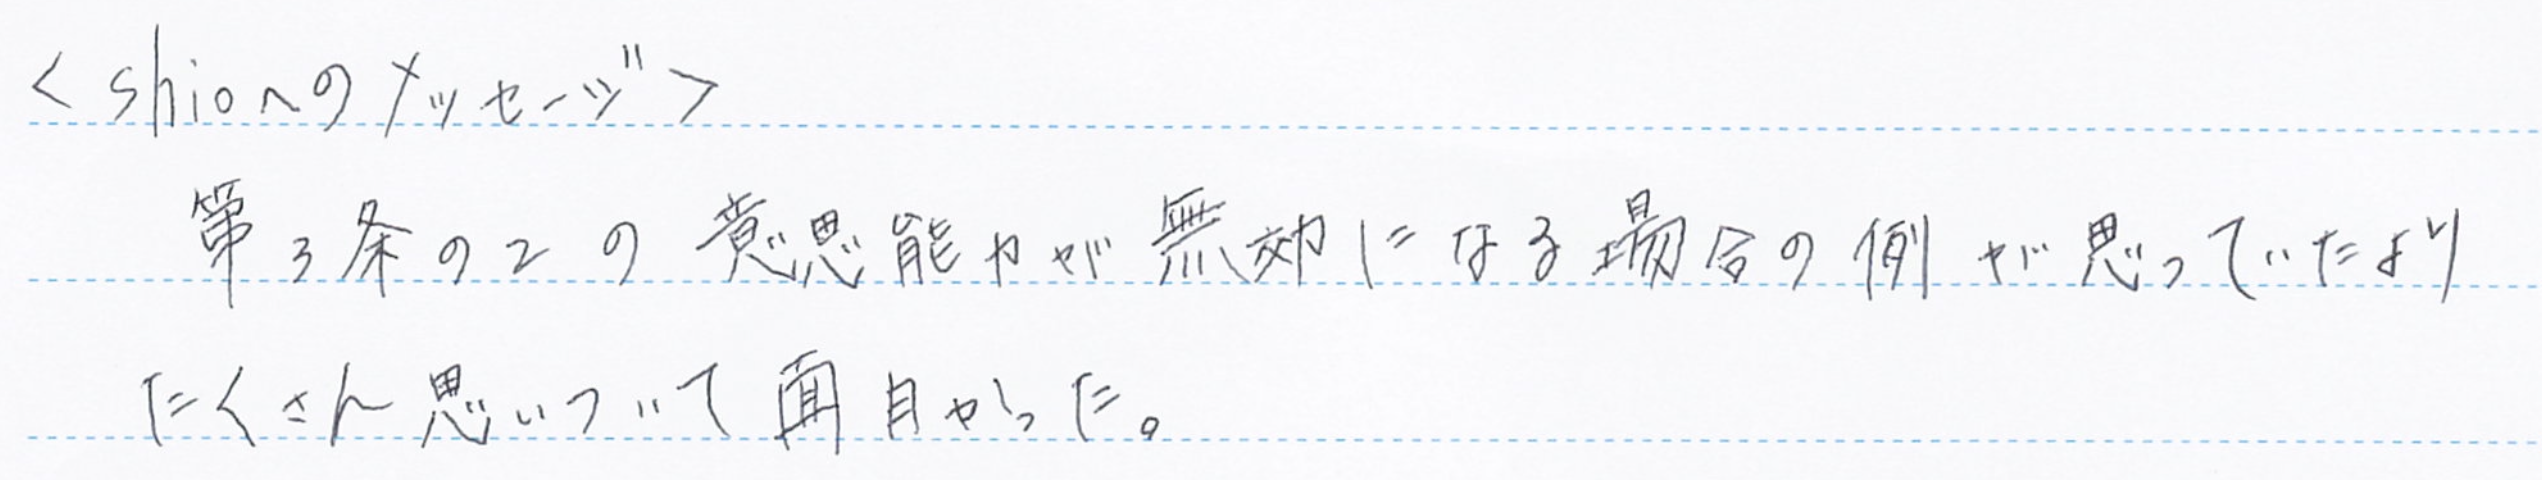 <shioへのメッセージ>
第3条の2の意思能力が無効になる場合の例が思っていたより
たくさん思いついて面白かった。